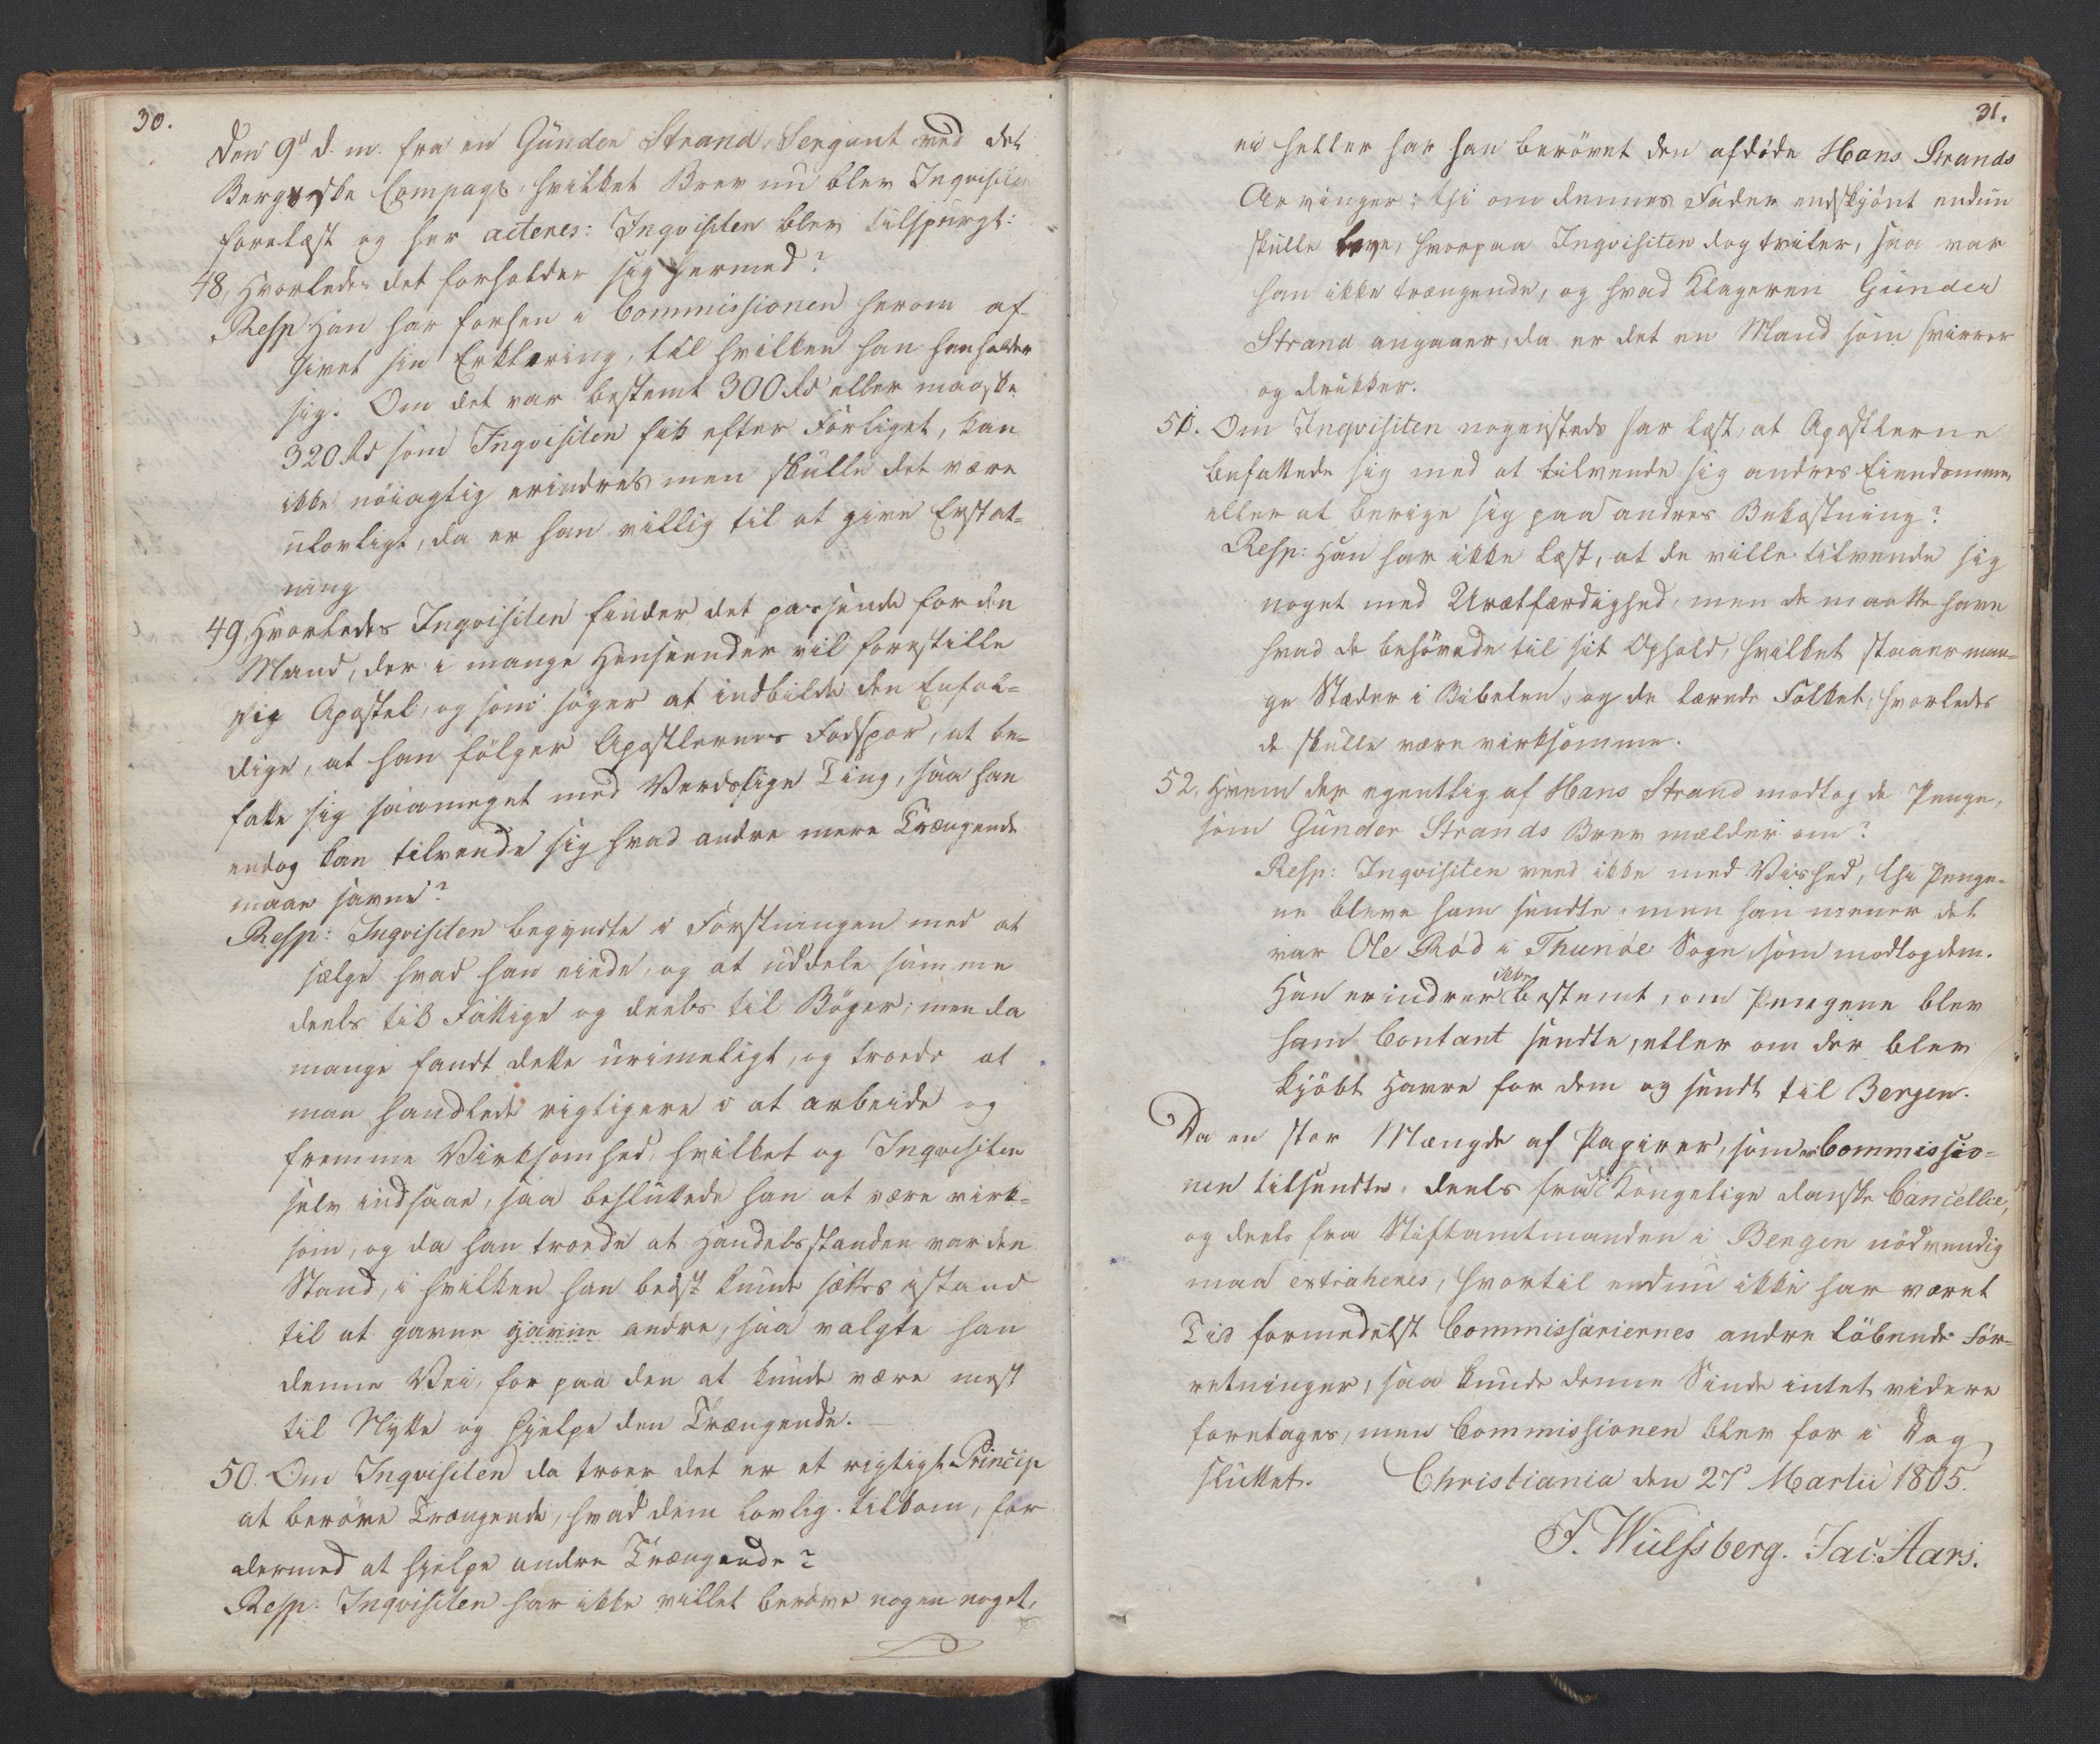 30.
den 9d d. m. fra en Gunder Strand, Sergant ved det
Bergenske Compagt, hvilket Brev nu blev Inqvisiten
forelæst og her acteres: Inqvisiten blev tilspurgt:
48, Hvorledes det forholder sig hermed?
Resp: Han har forhen i Commissionen herom af-
givet sin Erklæring, til hvilken han henholder
sig: Om det var bestemt 300 Rd eller maaske
320 Rd som Inqvisiten fik efter Forliget, kan
ikke nöiagtig erindres, men skulle det være
ulovligt, da er han villig til at give Erstat-
ning
49, Hvorledes Inqvisiten finder det passende for den
Mand, der i mange Henseender vil forestille
sig Apostel, og som söger at indbilde den Enfol-
dige, at han fölger Apostlernes Fodspor, at be-
fatte sig saameget med Verdslige Ting, saa han
endog kan tilvende sig hvad andre mere Trængende
maae savne?
Resp: Inqvisiten begyndte i Förstningen med at
sælge hvad han eiede, og at uddele samme
deels til Fattige og deels til Böger; men da
mange fandt dette urimeligt, og troede at
man handlede rigtigere i at arbeide og
fremme Virksomhed, hvilket og Inqvisiten
selv indsaae, saa besluttede han at være virk-
som, og da han troede at Handelsstanden var den
Stand, i hvilken han bedst kunde sættes istand
til at gavne gavne andre, saa valgte han
denne Vei, for paa den at kunde være mest
til Nytte og hjelpe den Trængende.
50. Om Inqvisiten da troer det er et rigtigt Princip
at beröve Trængende, hvad dem lovlig tilkom, for
dermed at hjelpe andre Trængende?
Resp: Inqvisiten har ikke villet beröve nogen noget,
31.
ei heller har han berövet den afdöde Hans Strands
Arvinger; thi om dennes Fader endskjönt endnu
skulle leve, hvorpaa Inqvisiten dog tviler, saa var
han ikke trængende, og hvad Klageren Gunder
Strand angaaer, da er det en Mand som svirrer
og drikker.
51. Om Inqvisiten nogensteds har læst, at Apostlerne
befattede sig med at tilvende sig andres Eiendomme,
eller at berige sig paa andres Bekostning?
Resp: Han har ikke læst, at de ville tilvende sig
noget med Uretfærdighed, men de maatte have
hvad de behövede til sit Ophold, hvilket staaer man-
ge Stæder i Bibelen, og de lærede Folket, hvorledes
de skulle være virksomme.
52. Hvem der egentlig af Hans Strand modtog de Penge,
som Gunder Strands Brev mælder om?
Resp: Inqvisiten veed ikke med Vished, thi Penge-
ne bleve ham sendte, men han mener det
var Ole Röd i Thunöe Sogn, som modtog dem.
Han erindrer ikke bestemt, om Pengene blev
ham Contant sendte, eller om der blev
kjöbt Havre for dem og sendt til Bergen.
Da en stor Mængde af Papirer, som er Commissio-
nen tilsendte, deels fra det Kongelige danske Cancellie,
og deels fra Stiftamtmanden i Bergen nödvendig
maa extraheres, hvortil endnu ikke har været
Tid formedelst Commissariernes andre löbende For-
retninger, saa kunde denne Sinde intet videre
foretages, men Commissionen blev for i Dag
sluttet. Christiania den 27d Martii 1805.
F. Wülfsberg. Jac: Aars.